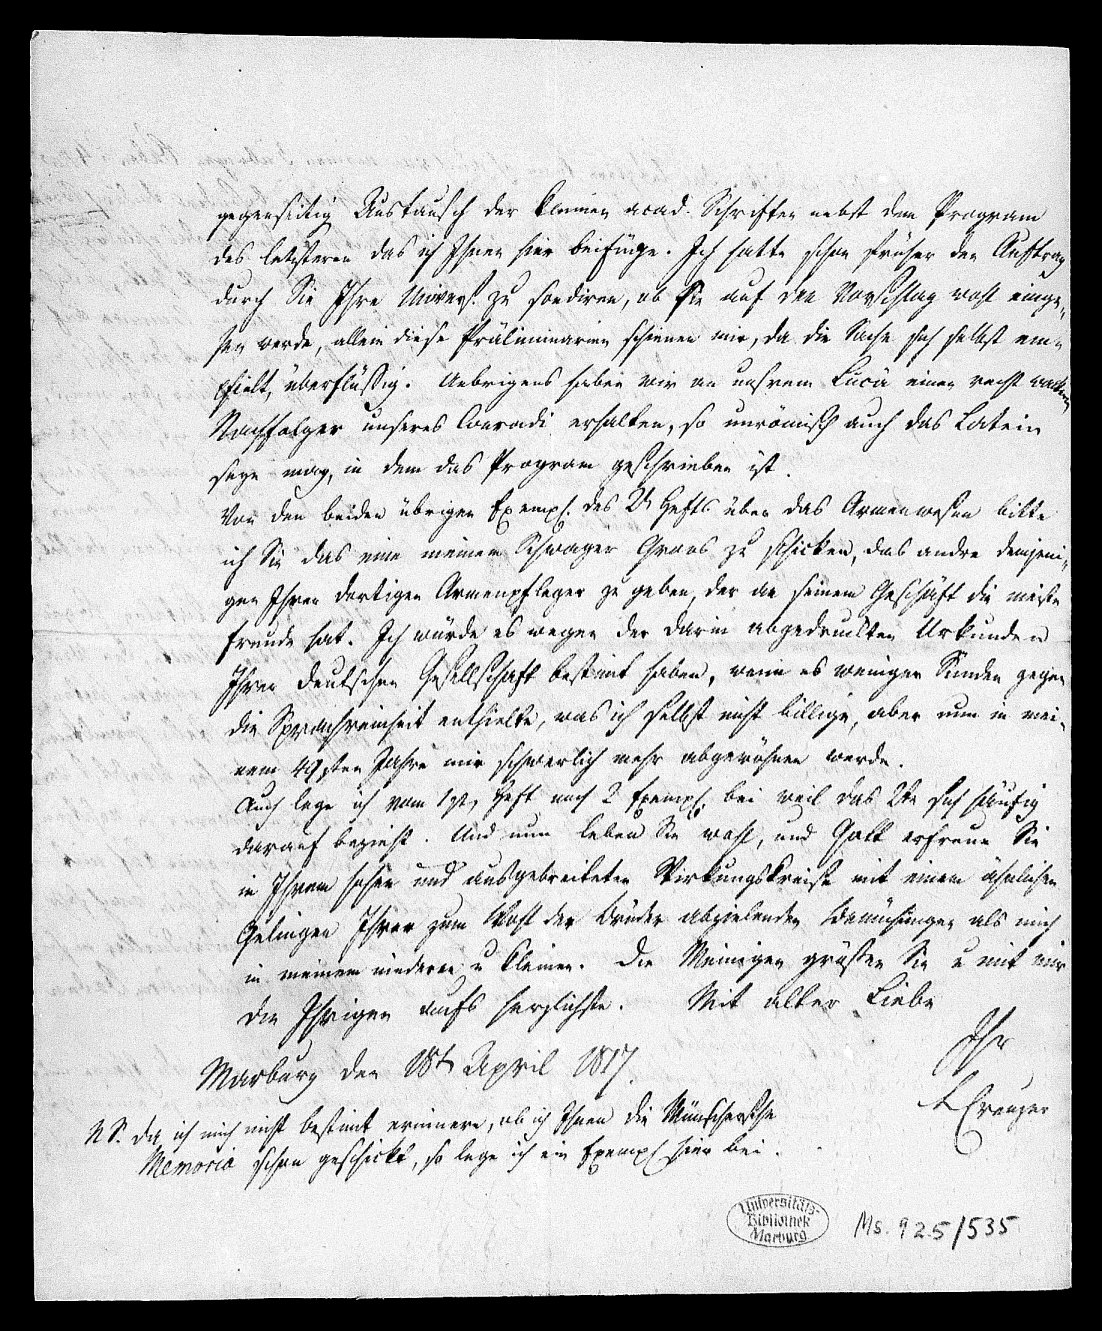 gegenseitig Austausch der kleinen acad. Schriften nebst dem Program
des letzteren das ich Ihnen hier beifüge. Ich hatte schon früher den Auftrag
durch Sie Ihre Univers. zu sondiren, ob sie auf den Vorschlag wohl einge-
hen werde, allein diese Präliminarien schienen mir, da die Sache sich selbst em-
pfielt, überflüßig. Uebrigens haben wir an unsrem Lucä einen recht wackern
Nachfolger unseres Conradi erhalten, so unrömisch auch das Latein
seyn mag, in dem das Program geschrieben ist.
Von den beiden übrigen Exempl. des 2t Hefts über das Armenwesen bitte
ich Sie das eine meinem Schwager Groos zu schicken, das andre demjeni-
gen Ihrer dortigen Armenpfleger zu geben, der an seinem Geschäft die meiste
Freude hat. Ich würde es wegen der darin abgedruckten Urkunden
Ihrer deutschen Gesellschaft bestimt haben, wenn es weniger Sünden gegen
die Sprachreinheit enthielte, was ich selbst nicht billige, aber nun in mei-
nem 49sten Jahre mir schwerlich mehr abgewöhnen werde.
Auch lege ich vom 1sten Heft noch 2 Exempl. bei weil das 2te sich häufig
darauf bezieht. Und nun leben Sie wohl, und Gott erfreue Sie
in Ihrem hohen und ausgebreiteten Wirkungskreise mit einem ähnlichen
Gelingen Ihrer zum Wohl der Brüder abzielenden Bemühungen als mich
in meinem niederen u kleinen. Die Meinigen grüßen Sie u mit mir
die Ihrigen aufs herzlichste. Mit alter Liebe
Ihr
Marburg den 18t April 1817
L Creuzer
NS. Da ich mich nicht bestimt erinnere, ob ich Ihnen die Münschersche
Memoria schon geschickt, so lege ich ein Exempl hier bei.
Universitäts-
Bibliothek
Marburg
Ms. 925/535